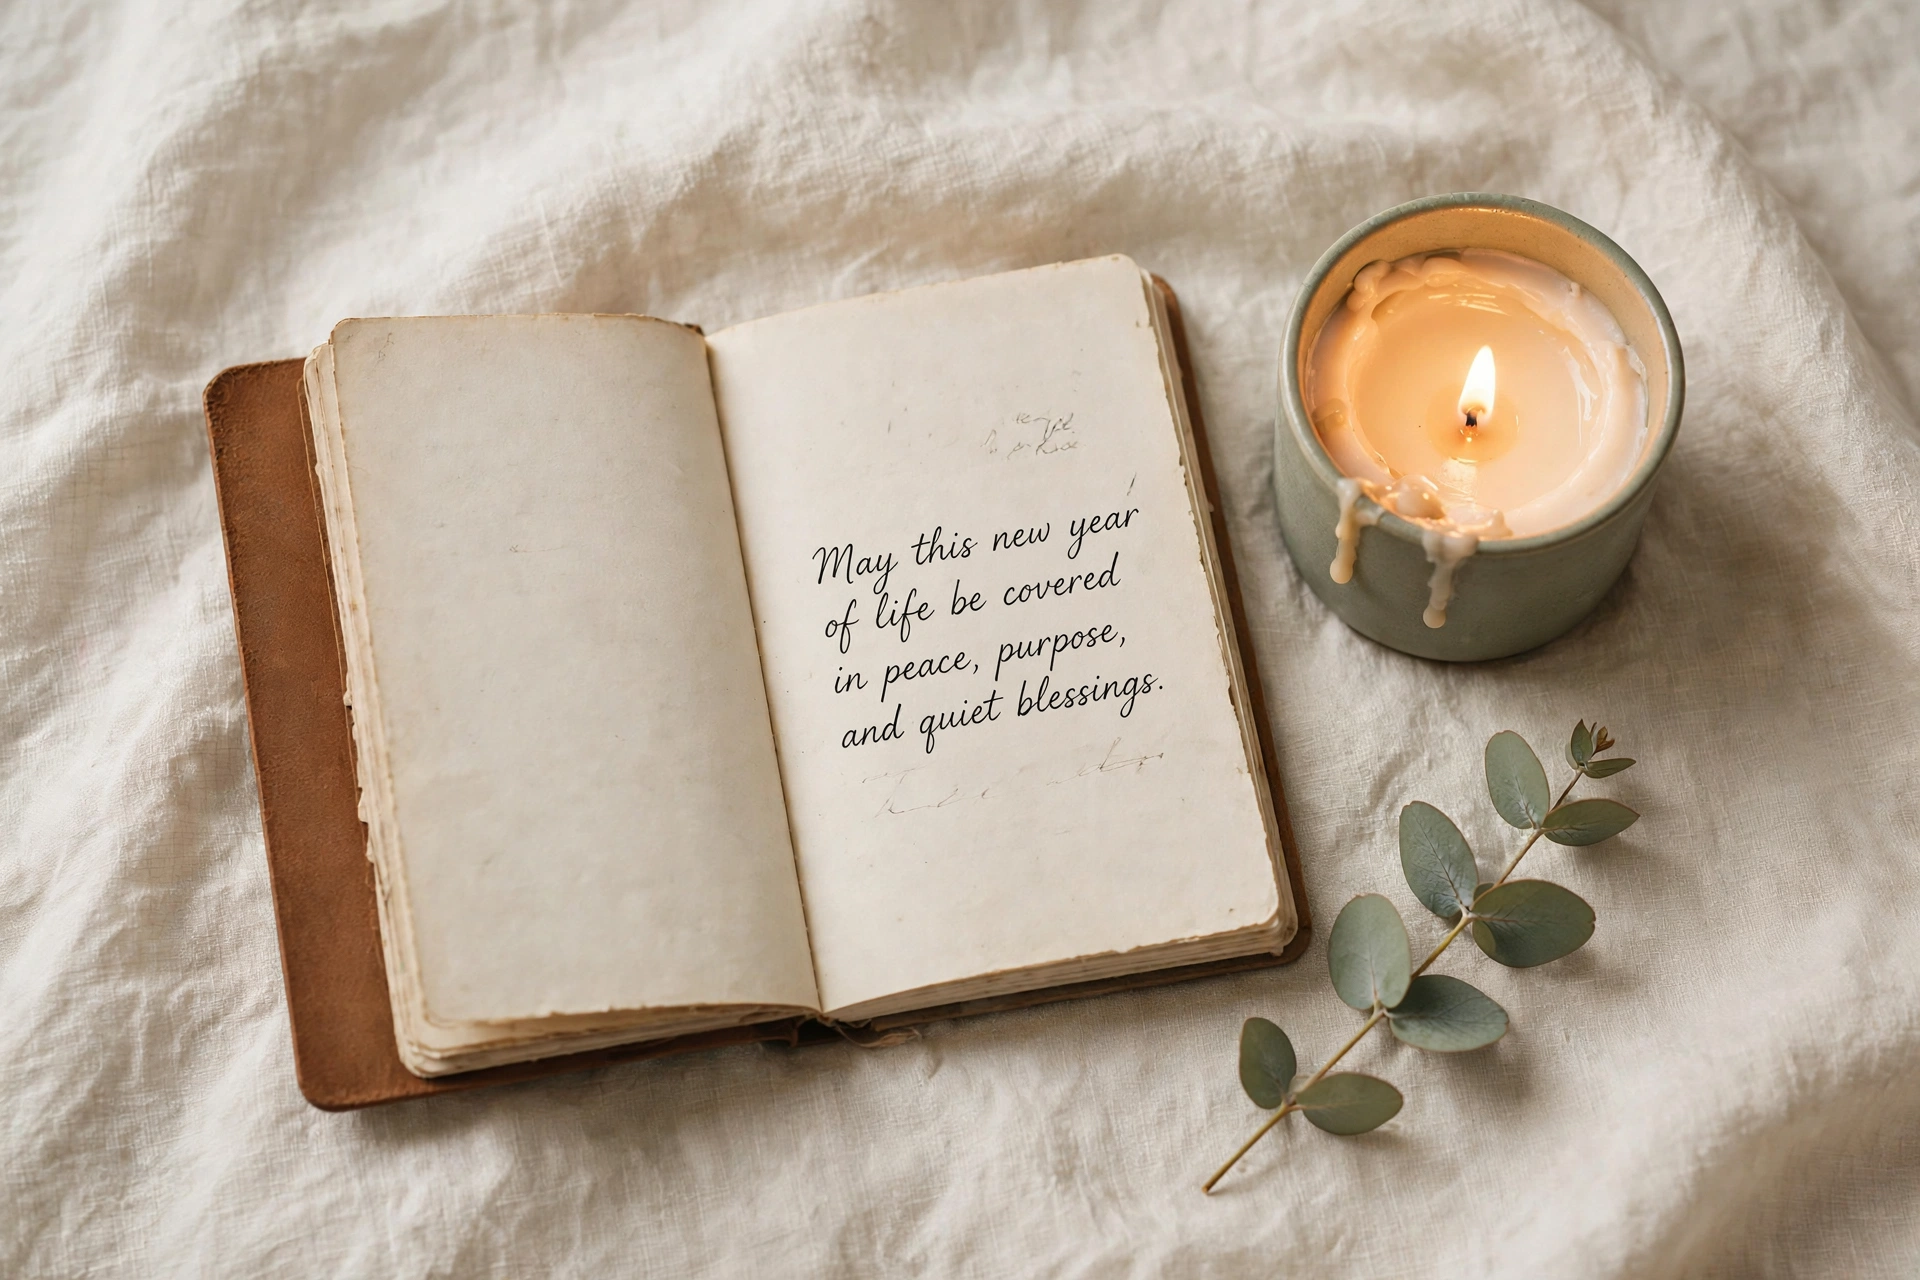 May this new year
of life be covered
in peace, purpose,
and quiet blessings.